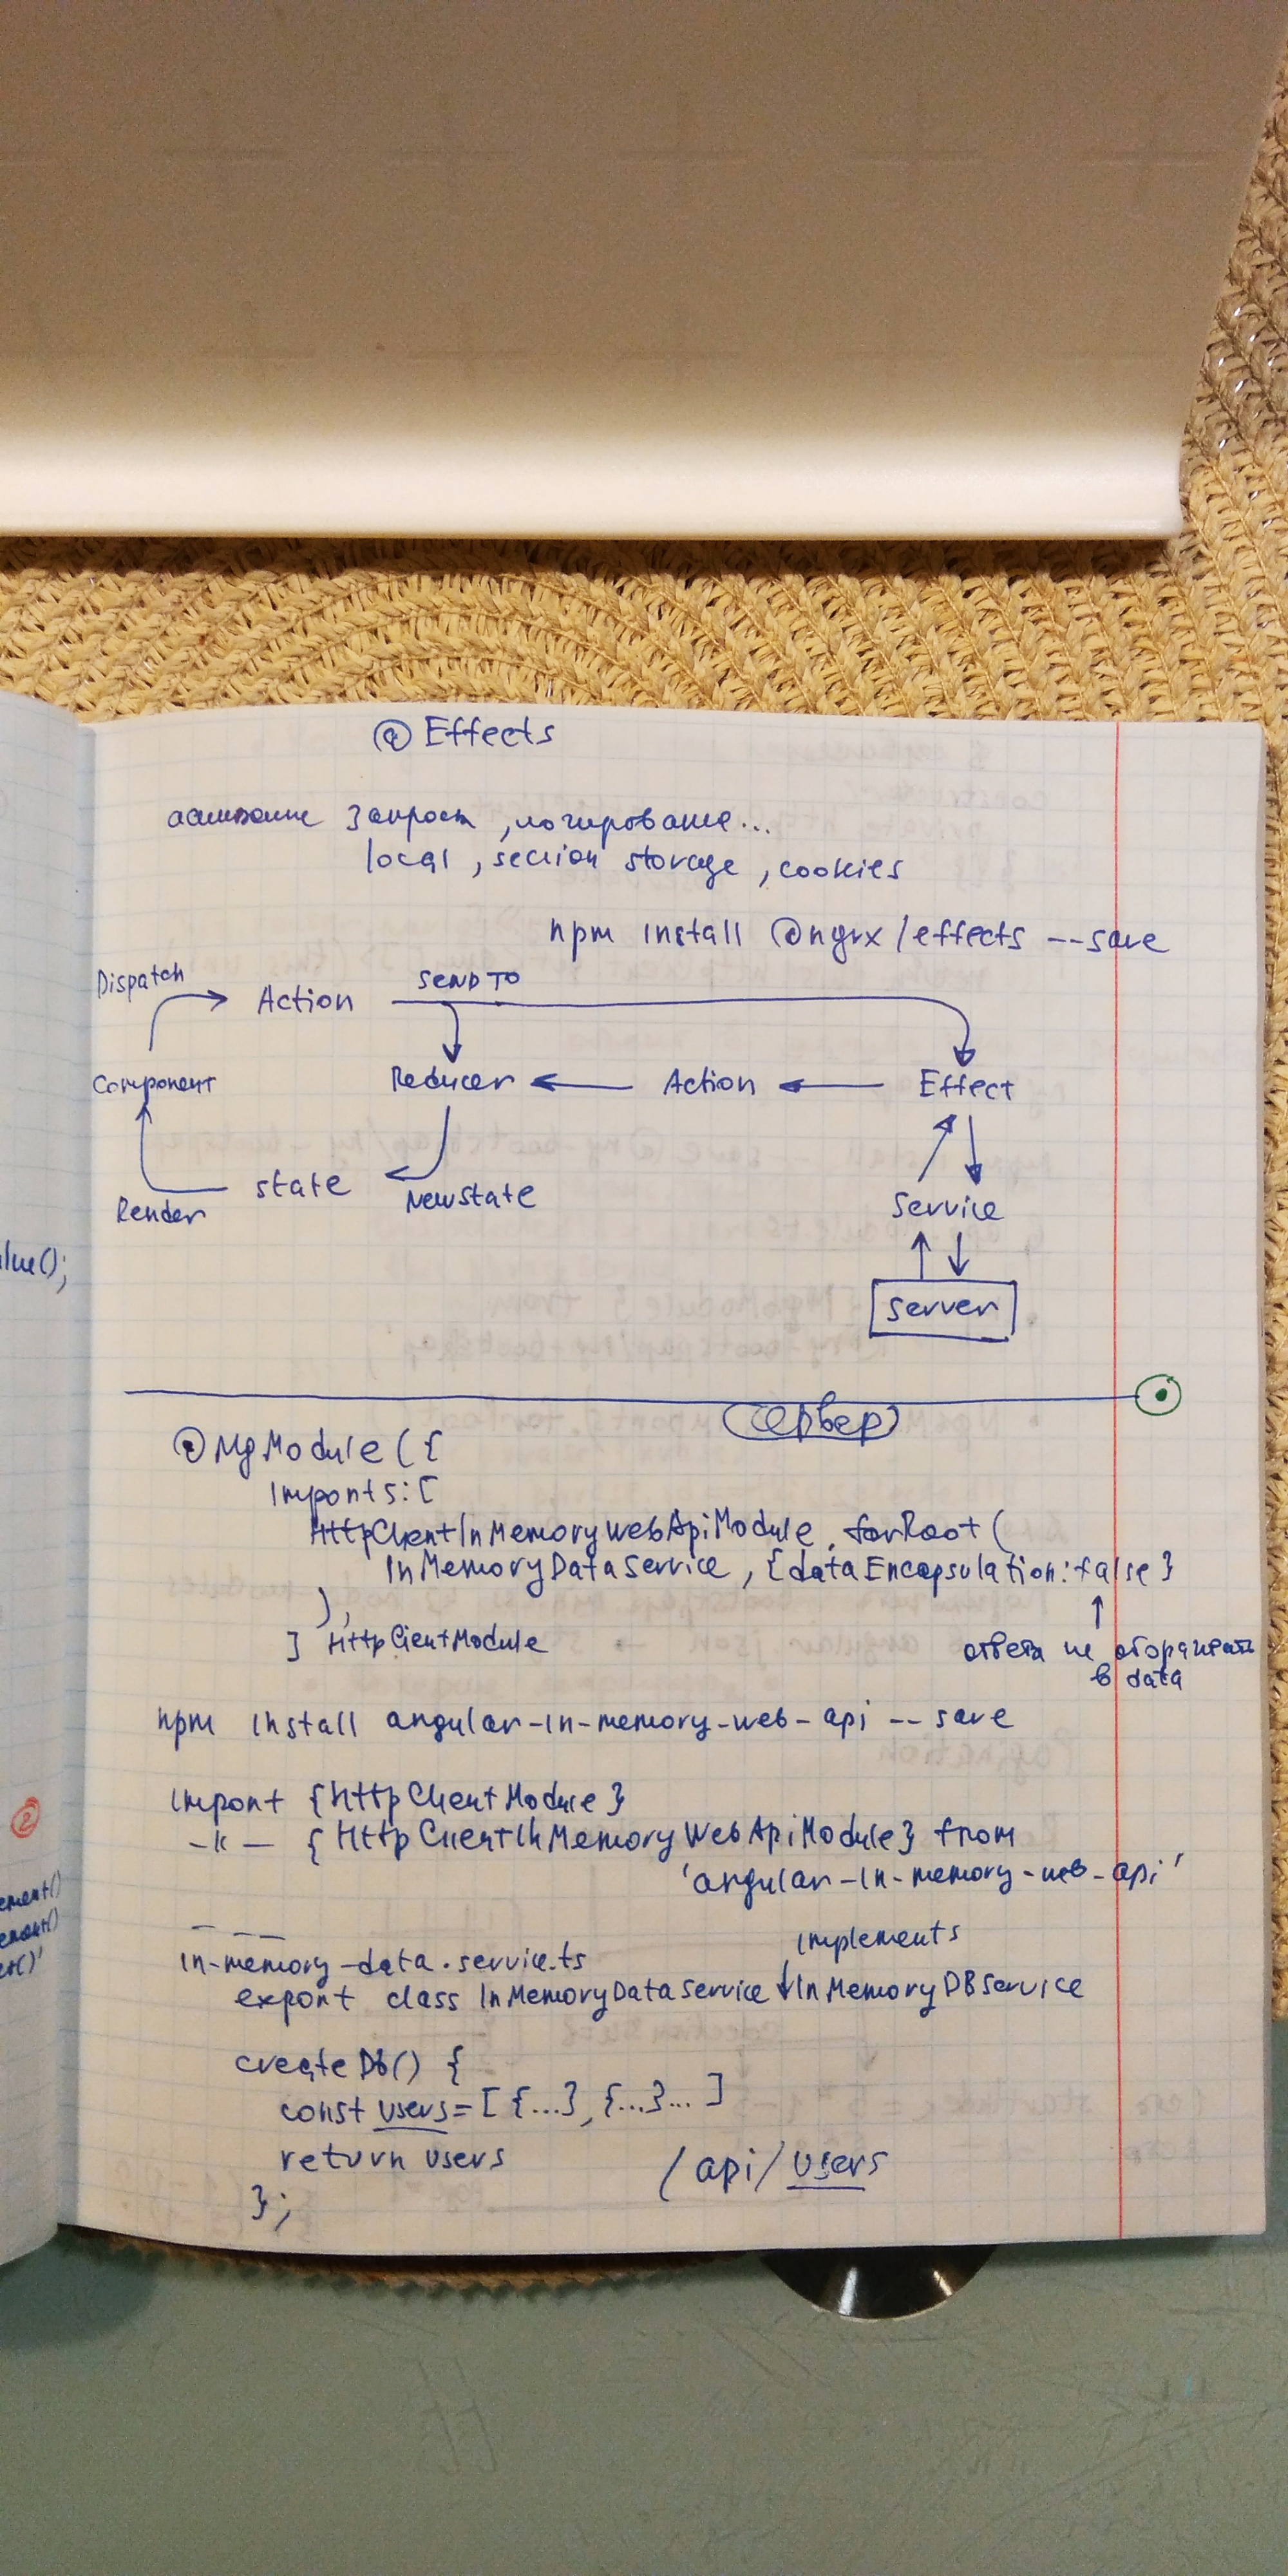 @ Effects
запросы, логирование...
local, session storage, cookies
npm install @ngrx/effects --save
Dispatch
Action
SEND TO
Component
Reducer
Action
Effect
Render
state
New state
Service
alue();
Server
Сервер
@NgModule({
imports: [
HttpClientInMemoryWebApiModule.forRoot(
InMemoryDataService, {dataEncapsulation: false}
),
] HttpClientModule
ответы не оборачивать
в data
npm install angular-in-memory-web-api -- save
2
import {HttpClientModule}
-"- {HttpClientInMemoryWebApiModule} from
'angular-in-memory-web-api'
ement()
et()'
in-memory-data.service.ts
implements
export class InMemoryDataService InMemoryDBService
createDb() {
const users = [{...}, {...}... ]
return users
/api/users
};